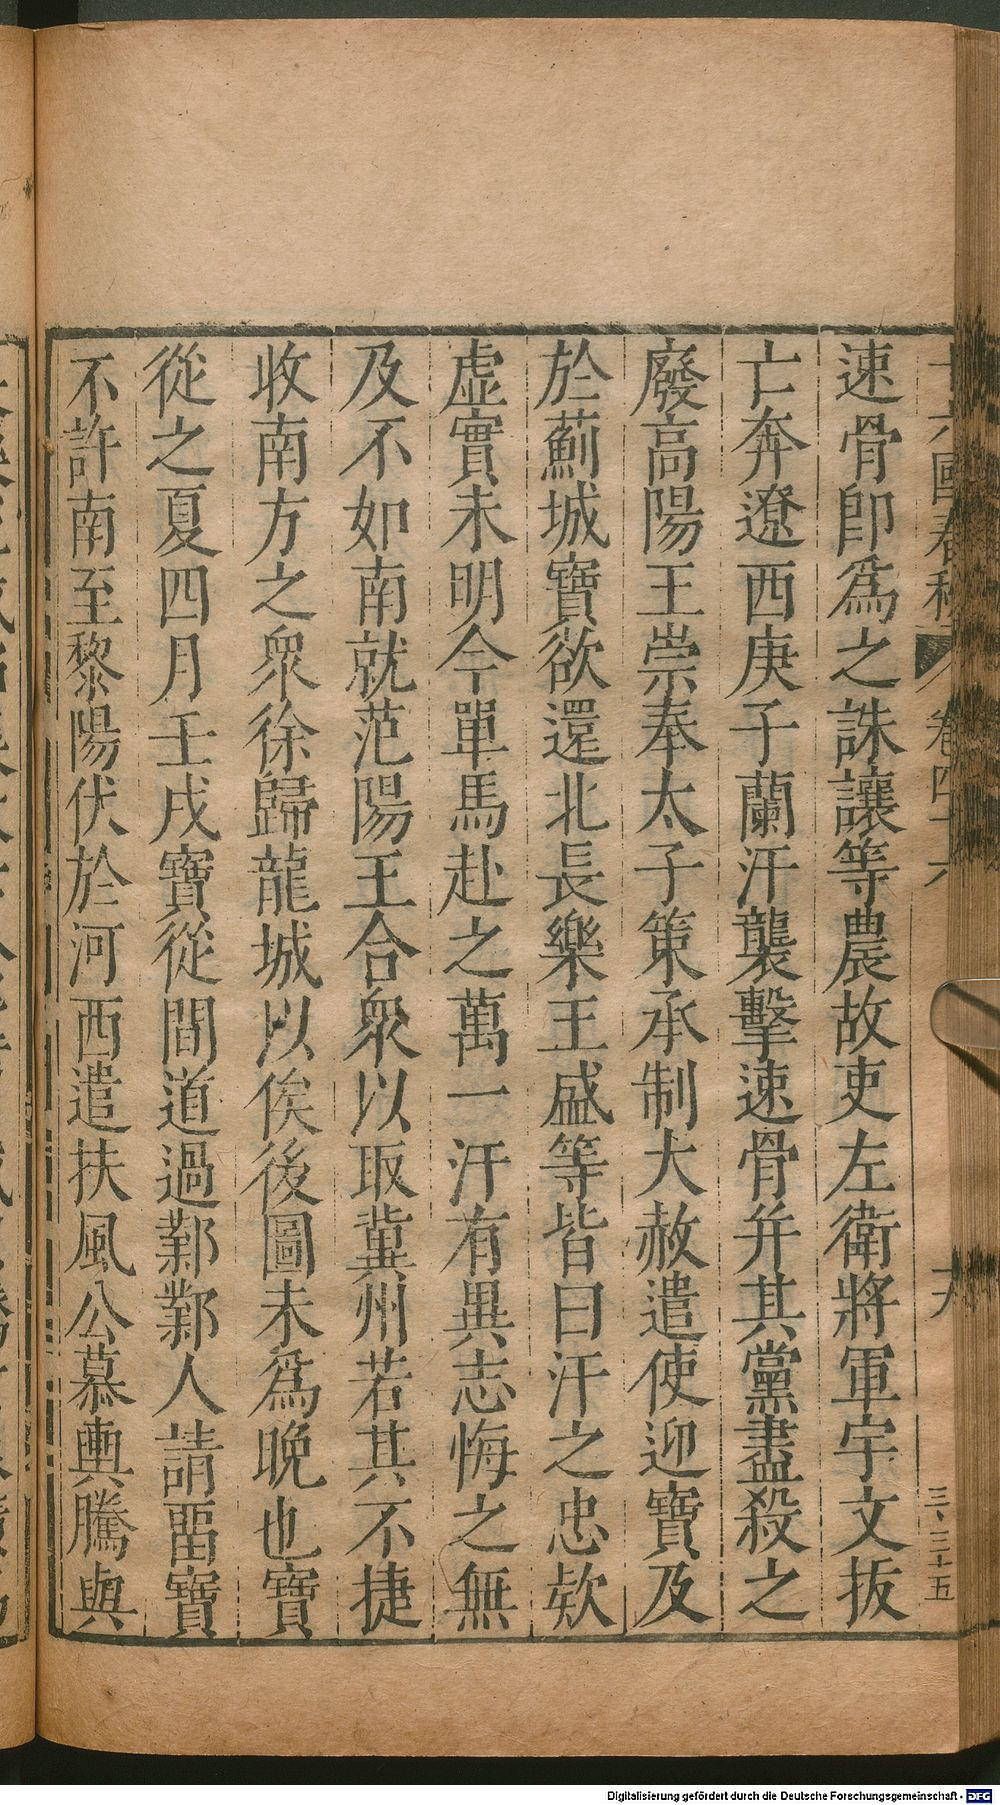 速骨即爲之誅讓等農故吏左衛將軍宇文拔
亡奔遼西庚子蘭汗襲擊速骨并其黨盡殺之
廢高陽王崇奉太子策承制大赦遣使迎寶及
於薊城寶欲還北長樂王盛等皆曰汗之忠欵
虛實未明今單馬赴之萬一汗有異志悔之無
及不如南就范陽王合衆以取冀州若其不捷
收南方之衆徐歸龍城以俟後圖未爲晚也寶
從之夏四月壬戌寶從間道過鄴鄴人請畱寶
不許南至黎陽伏於河西遣扶風公慕輿騰與
十六國春秋
卷四十六
三、三十五
Digitalisierung gefördert durch die Deutsche Forschungsgemeinschaft - DFG